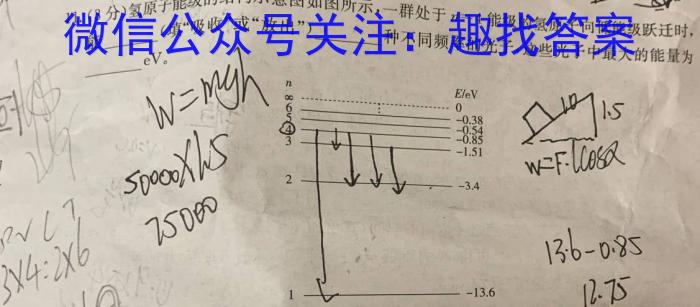 氢原子能级的结构示意图如图所示，一群处于
能级的氢原子向低能级跃迁时，
微信公众号关注：趣找答案
填“吸收”或“放出”
种不同频率的光子
这些光子中最大的能量为
eV。
n
E/eV
∞
0
6
-0.38
5
-0.54
4
-0.85
3
-1.51
2
-3.4
1
-13.6
W=mgh
50000×1.5
75000
3×4=2×6
1.0
1.5
W=F·lcosα
13.6-0.85
12.75